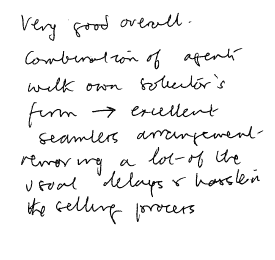 Very good overall.
Combination of agents
with own solicitor's
firm → excellent
seamless arrangement -
removing a lot of the
usual delays & hassle in
the selling process